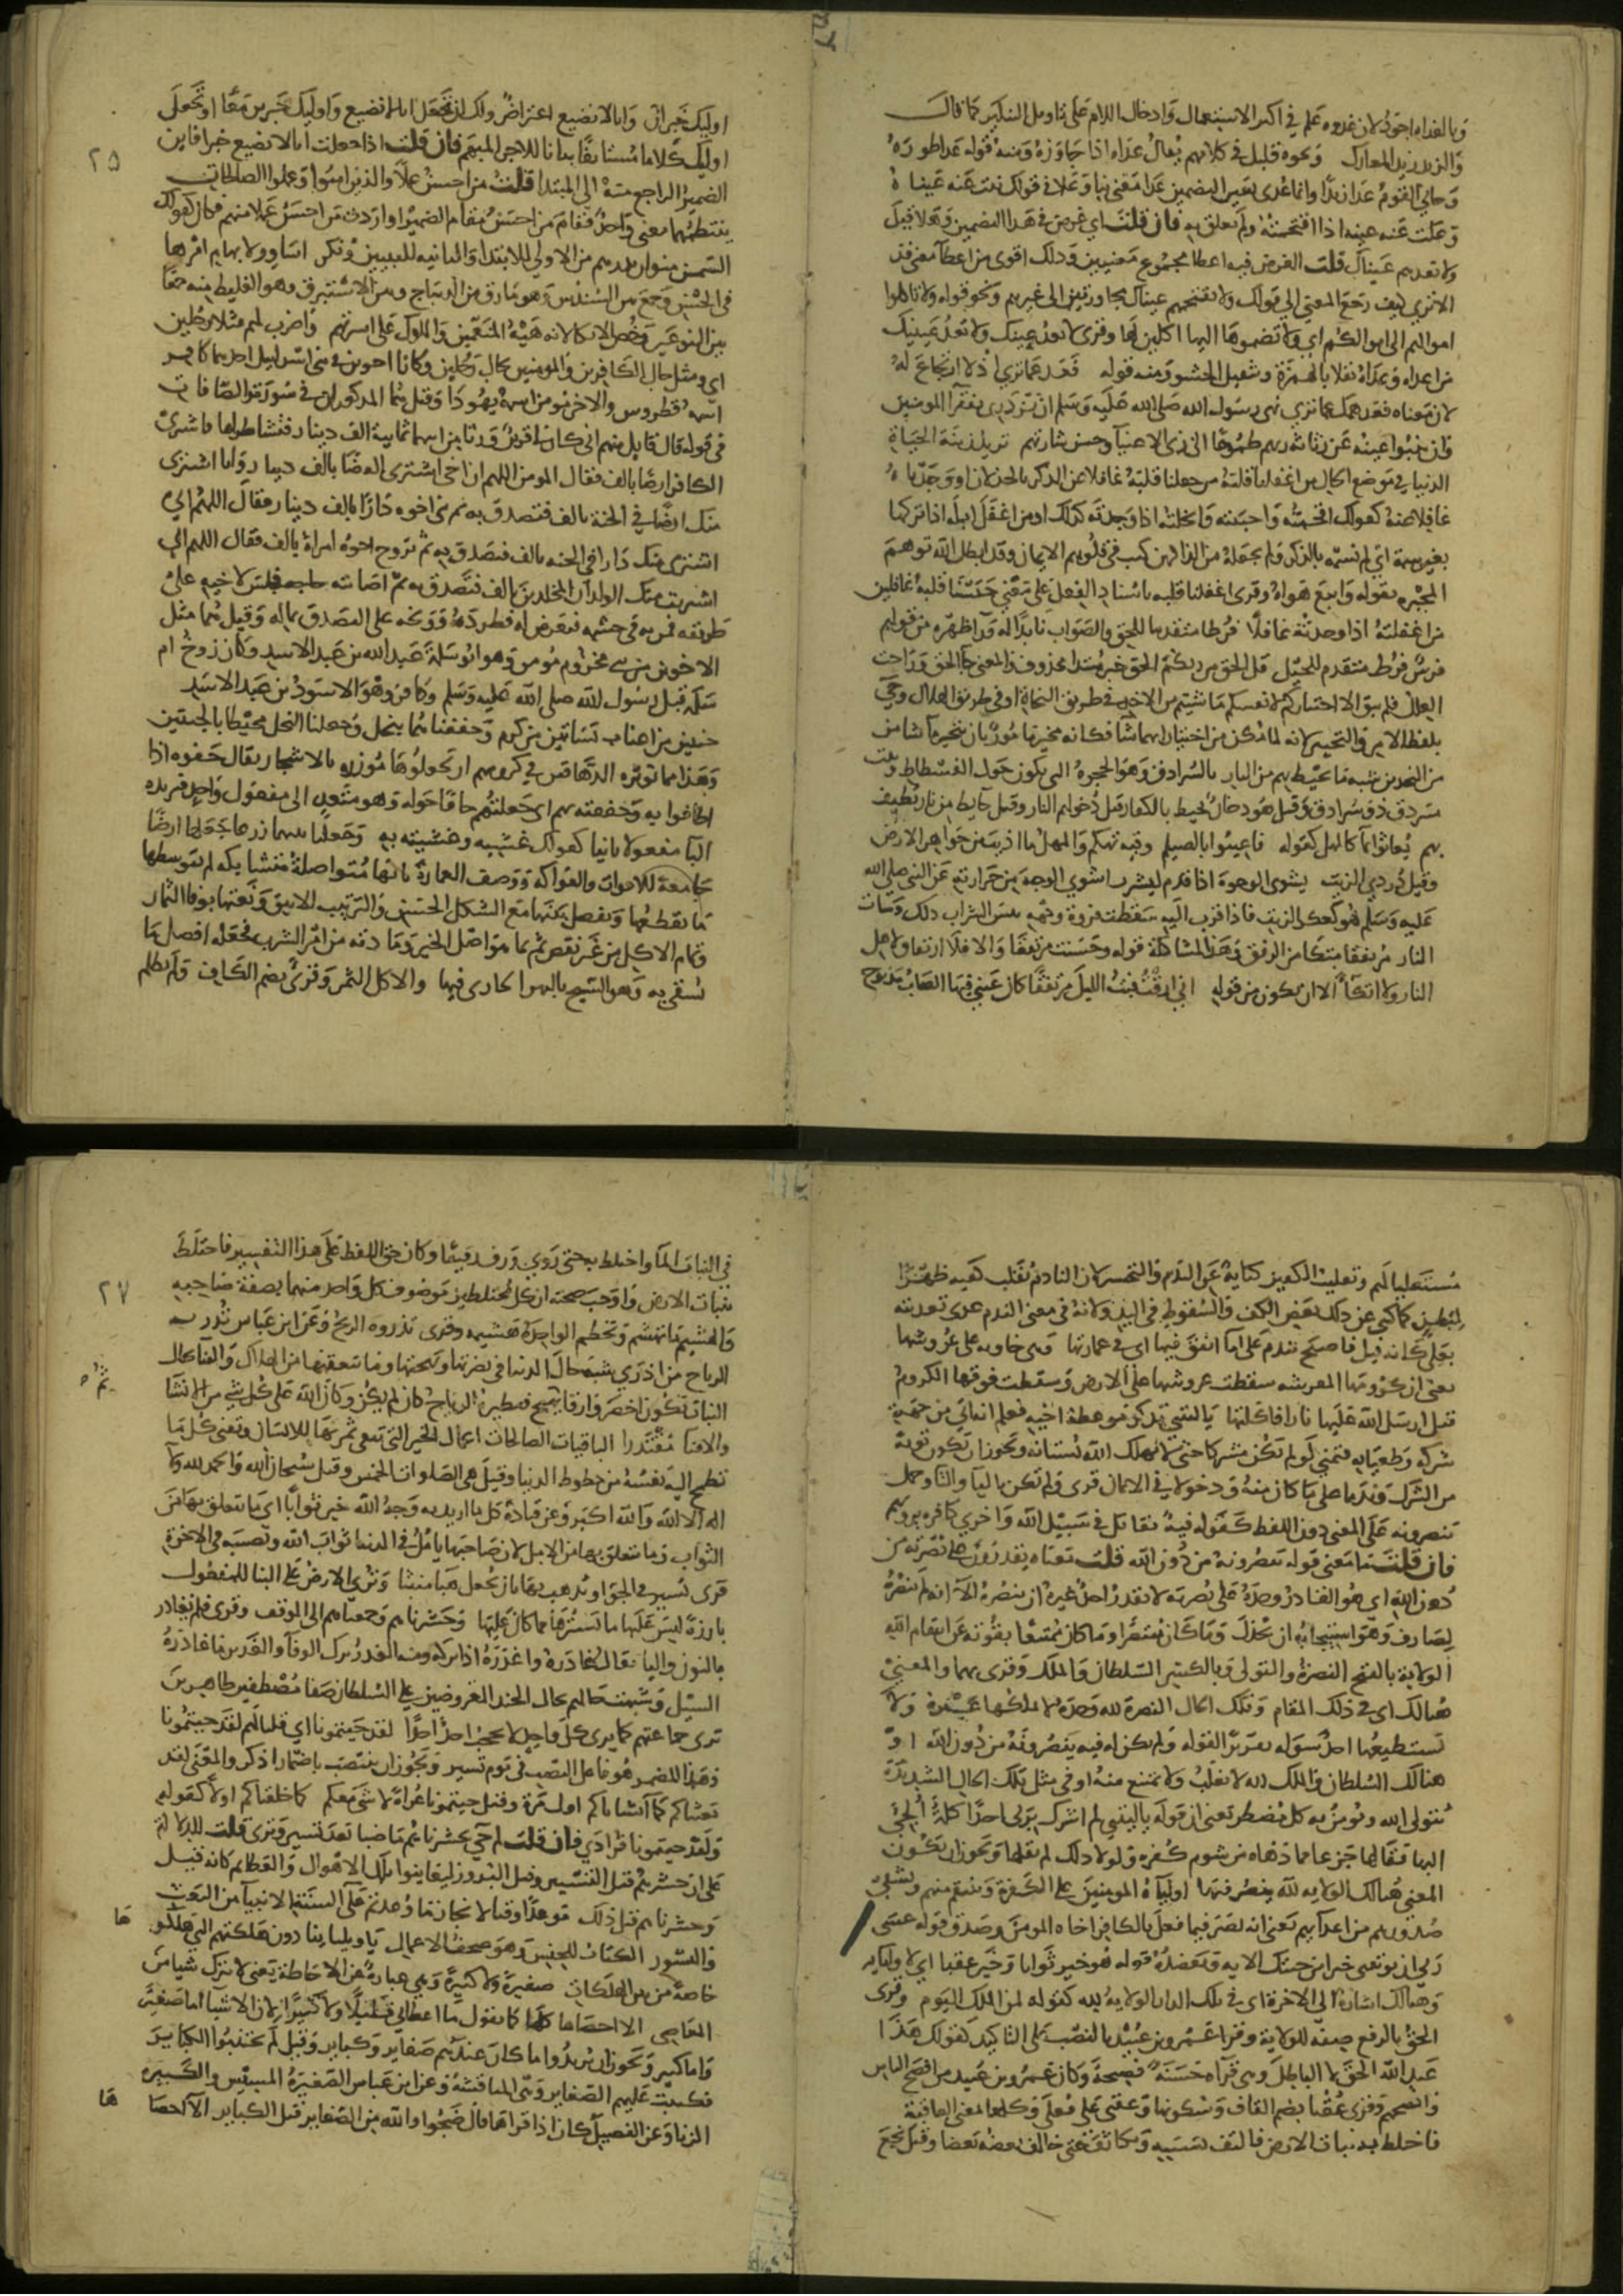 وبالغداه اجود لان غدوه علم في اكثر الاستعمال وادخال اللام على تاويل التنكير كما قال
والزيد زيد المعارك ونحوه قليل في كلامهم يقال عداه اذا جاوزه ومنه قوله عدا طوره
وجاني القوم عدا زيدا وانما عدى بعن لتضمين عدا معنى نبا وعلا في قولك نبت عنه عينه
وعلت عنه عينه اذا اقتحمته ولم تعلق به فان قلت اي غرض في هذا التضمين وهلا قيل
ولا تعدهم عيناك قلت الغرض فيه اعطا مجموع معنيين وذلك اقوى من اعطا معنى فذ
الا ترى كيف رجع المعنى الى قولك ولا تقتحمهم عيناك مجاوزتين الى غيرهم ونحو قوله ولا تاكلوا
اموالهم الى اموالكم اي ولا تضموها اليها اكلين لها وقرى لا تعد عينك ولا تعد عينيك
من اعداه وعداه نقلا بالهمزة وتثقيل الحشو ومنه قوله فعد عما ترى اذ لا ارتجاع له
لان معناه فعد همك عما ترى نهى رسول الله صلى الله عليه وسلم ان يزدرى بفقرا المومنين
وان تنبوا عينه عن رثاثة زيهم طموحا الى زى الاغنيا وحسن شارتهم تريد زينة الحياة
الدنيا في موضع الحال من اغفلنا قلبه من جعلنا قلبه غافلا عن الذكر بالخذلان او وجدناه
غافلا عنه كقولك اجبنته وافحمته وابخلته اذا وجدته كذلك او من اغفل ابله اذا تركها
بغير سمة اي لم نسمه بالذكر ولم نجعله من الذين كتب في قلوبهم الايمان وقد ابطل الله توهم
المجبره بقوله واتبع هواه وقرى اغفلنا قلبه باسناد الفعل على معنى حسبنا قلبه غافلين
من اغفلته اذا وجدته غافلا فرطا متقدما للحق والصواب نابذا له ورا ظهره من قولهم
فرس فرط متقدم للخيل قل الحق من ربكم الحق خبر مبتدا محذوف والمعنى جا الحق وزاحت
العلل فلم يبق الا اختياركم لانفسكم ما شيتم من الاخذ في طريق النجاة او في طريق الهلاك وجي
بلفظ الامر والتخيير لانه لما مكن من اختيار ايهما شا فكانه مخير مامور بان يتخير ما شا من
النجدين شبه ما يحيط بهم من النار بالسرادق وهو الحجرة التي تكون حول الفسطاط وبيت
مسردق ذو سرادق وقيل هو دخان يحيط بالكفار قبل دخولهم النار وقيل حايط من نار يطيف
بهم يغاثوا بما كالمهل كقوله فاعتبوا بالصيلم وفيه تهكم والمهل ما اذيب من جواهر الارض
وقيل دردي الزيت يشوى الوجوه اذا قدم ليشرب اشوى الوجه من حرارته عن النبي صلى الله
عليه وسلم هو كعكر الزيت فاذا قرب اليه سقطت فروة وجهه بيس الشراب ذلك وسات
النار مرتفقا متكا من الرفق وهذا لمشاكلة قوله وحسنت مرتفقا والا فلا ارتفاق لاهل
النار ولا اتكا الا ان يكون من قوله اني ارقت فبت الليل مرتفقا كان عيني فيها الصاب مذبوح
اوليك خبر ان وانا لا نضيع اعتراض ولك ان تجعل انا لا نضيع واوليك خبرين معا او تجعل
اوليك كلاما مستانفا بيانا للاجر المبهم فان قلت اذا جعلت انا لا نضيع خبرا فاين
الضمير الراجع منه الى المبتدا قلت من احسن عملا والذين امنوا وعملوا الصالحات
ينتظمهما معنى واحد فقام من احسن مقام الضمير او اردت من احسن عملا منهم فكان كقولك
السمن منوان بدرهم من الاولى للابتدا والثانيه للتبيين وتنكير اساور لابهام امرها
في الحسن وجمع بين السندس وهو ما رق من الديباج وبين الاستبرق وهو الغليظ منه جمعا
بين النوعين وخص الاتكا لانه هية المنعمين والملوك على اسرتهم واضرب لهم مثلا رجلين
اي ومثل حال الكافرين والمومنين بحال رجلين وكانا اخوين في بني اسرائيل احدهما كافر
اسمه قطروس والاخر مومن اسمه يهوذا وقيل هما المذكوران في سورة والصافات
في قوله قال قايل منهم اني كان لي قرين ورثا من ابيهما ثمانية الف دينار فتشاطراها فاشترى
الكافر ارضا بالف فقال المومن اللهم ان اخي اشترى ارضا بالف دينار وانا اشترى
منك ارضا في الجنة بالف فتصدق به ثم بنى اخوه دارا بالف دينار فقال اللهم اني
اشترى منك دارا في الجنه بالف فتصدق به ثم تزوج اخوه امراة بالف فقال اللهم اني
اشتريت منك الولدان المخلدين بالف فتصدق به ثم اصابته حاجه فجلس لاخيه على
طريقه فمر به في حشمه فتعرض له فطرده ووبخه على التصدق بماله وقيل هما مثل
الاخوين من بني مخزوم مومن وهو ابو سلمة عبد الله بن عبد الاسد وكان زوج ام
سلمة قبل رسول الله صلى الله عليه وسلم وكافر وهو الاسود بن عبد الاسد
جنتين من اعناب بساتين من كروم وحففناهما بنخل وجعلنا النخل محيطا بالجنتين
وهذا مما توثره الدهاقين في كرومهم ان يجعلوها موزره بالاشجار يقال حفوه اذا
اطافوا به وحففته بهم اي جعلتهم حافين حوله وهو متعد الى مفعول واحد فتزيده
البا مفعولا ثانيا كقولك غشيه وغشيته به وجعلنا بينهما زرعا جعلها ارضا
جامعة للاقوات والفواكه ووصف العمارة بانها متواصلة متشابكه لم يتوسطها
ما يقطعها ويفصل بينها مع الشكل الحسن والترتيب الانيق ونعتها بوفا الثمار
وتمام الاكل من غير نقص ثم بما هو اصل الخير ومادته من امر الشرب فجعله افضل ما
يسقى به وهو السيح بالنهر الجاري فيها والاكل الثمر وقرى بضم الكاف ولم تظلم
٢٥
مستعليا لهم وتقليب الكفين كناية عن الندم والتحسر لان النادم يقلب كفيه ظهرا
لبطن كما كنى عن ذلك بعض الكف والسقوط في اليد ولانه في معنى الندم عدى تعديته
بعلى كانه قيل فاصبح يندم على ما انفق فيها اي في عمارتها وهى خاوية على عروشها
يعنى ان كرومها المعرشه سقطت عروشها على الارض وسقطت فوقها الكروم
قيل ارسل الله عليها نارا فاكلتها يا ليتني تذكر موعظة اخيه فعلم انه اتي من جهة
شركه وطغيانه فتمنى لو لم يكن مشركا حتى لا يهلك الله بستانه ويجوز ان يكون توبة
من الشرك وندما على ما كان منه ودخولا في الايمان قرى ولم تكن باليا والتا وحمل
تنصرونه على المعنى دون اللفظ كقوله فية تقاتل في سبيل الله واخرى كافرة يرونهم
فان قلت ما معنى قوله ينصرونه من دون الله قلت معناه يقدرون على نصرته من
دون الله اي هو القادر وحده على نصرته لا يقدر احد غيره ان ينصره الا انه لم ينصره
لصارف وهو استيجابه ان يخذل وما كان منتصرا وما كان ممتنعا بقوته عن انتقام الله
الولاية بالفتح النصرة والتولى وبالكسر السلطان والملك وقرى بهما والمعنى
هنالك اي في ذلك المقام وتلك الحال النصرة لله وحده لا يملكها غيره ولا
يستطيعها احد سواه تقريرا لقوله ولم تكن له فية ينصرونه من دون الله او
هنالك السلطان والملك لله لا يغلب ولا يمتنع منه او في مثل تلك الحال الشديدة
يتولى الله ويومن به كل مضطر يعني ان قوله يا ليتني لم اشرك بربي احدا كلمة الجي
اليها فقالها جزعا مما دهاه من شوم كفره ولولا ذلك لم يقلها ويجوز ان يكون
المعنى هنالك الولاية لله ينصر فيها اولياه المومنين على الكفرة وينتقم منهم ويشفي
صدورهم من اعدايهم يعني انه نصر فيما فعل بالكافر اخاه المومن وصدق قوله عسى
ربي ان يوتيني خيرا من جنتك الايه ويعضده قوله هو خير ثوابا وخير عقبا اي لاوليايه
وهنالك اشارة الى الاخرة اي في تلك الدار الولاية لله كقوله لمن الملك اليوم وقرى
الحق بالرفع صفه للولاية وقرا عمرو بن عبيد بالنصب على التاكيد كقولك هذا
عبد الله الحق لا الباطل وهى قرآه حسنة فصيحة وكان عمرو بن عبيد من افصح الناس
وانصحهم وقرى عقبا بضم القاف وسكونها وعقبى على فعلى وكلها لمعنى العاقبة
فاختلط به نبات الارض فالتف بسببه وتكاثف حتى خالف بعضه بعضا وقيل نجع
في النبات الما واختلط به حتى روي ورف رفيفا وكان حق اللفظ على هذا التفسير فاختلط
بنبات الارض واوجب صحته ان كل مختلطين موصوف كل واحد منهما بصفة صاحبه
والهشيم ما تهشم وتحطم الواحدة هشيمه وقرى تذروه الريح وعن ابن عباس تذريه
الرياح من اذرى شبه حال الدنيا في نضرتها وبهجتها وما يتعقبها من الهلاك والفنا بحال
النبات يكون اخضر وارفا ثم يهيج فتطيره الرياح كان لم يكن وكان الله على كل شي من الانشا
والافنا مقتدرا الباقيات الصالحات اعمال الخير التي تبقى ثمرتها للانسان وتفنى كل ما
تطمح اليه نفسه من حظوظ الدنيا وقيل هي الصلوات الخمس وقيل سبحان الله والحمد لله ولا
اله الا الله والله اكبر وعن قتادة كل ما اريد به وجه الله خير ثوابا اي ما يتعلق بها من
الثواب وما يتعلق بها من الامل لان صاحبها يامل في الدنيا ثواب الله ونصيبه في الاخرة
قرى تسير في الجو او يذهب بها بان يجعل هبا منبثا وترى الارض على البنا للمفعول
بارزة ليس عليها ما يسترها مما كان عليها وحشرناهم وجمعناهم الى الموقف وقرى فلم نغادر
بالنون واليا يقال غادره واغدره اذا تركه ومنه الغدر ترك الوفا والغدير ما غادره
السيل وشبهت حالهم بحال الجند المعروضين على السلطان صفا مصطفين ظاهرين
ترى جماعتهم كما يرى كل واحد لا يحجب احد احدا لقد جيتمونا اي قلنا لهم لقد جيتمونا
وهذا المضمر هو عامل النصب في يوم نسير ويجوز ان ينتصب باضمار اذكر والمعنى لقد
بعثناكم كما انشاناكم اول مرة وقيل جيتمونا عراة لا شي معكم كما خلقناكم اولا كقوله
ولقد جيتمونا فرادي فان قلت لم جي بحشرناهم ماضيا بعد نسير وترى قلت للدلالة
على ان حشرهم قبل التسيير وقبل البروز ليعاينوا تلك الاهوال والعظايم كانه قيل
وحشرناهم قبل ذلك موعدا وقتا لانجاز ما وعدتم على السنة الانبيا من البعث
والنشور الكتاب للجنس وهو صحف الاعمال يا ويلتنا ينادون هلكتهم التي هلكوها
خاصة من بين الهلكات صغيرة ولا كبيرة وهي عبارة عن الاحاطة يعني لا يترك شيا من
المعاصي الا احصاها كلها كما يقول ما اعطاني قليلا ولا كثيرا لان الاشيا اما صغير
واما كبير ويجوز ان يريدوا ما كان عندهم صغاير وكباير وقيل لم يجتنبوا الكباير
فكتبت عليهم الصغاير وهى المناقشة وعن ابن عباس الصغيرة التبسم والكبيرة
الزنا وعن الفضيل كان اذا قراها قال ضجوا والله من الصغاير قبل الكباير الا احصاها
٢٧